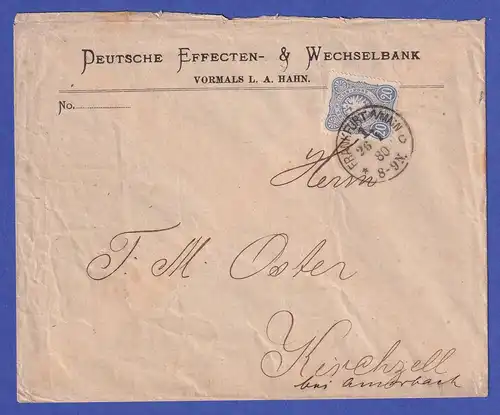 DEUTSCHE EFFECTEN- & WECHSELBANK
VORMALS L. A. HAHN.
No.
20
FRANKFURT A/MAIN
26
80
8-9N.
Herrn
F. M. Oster
Kirchzell
bei Amorbach